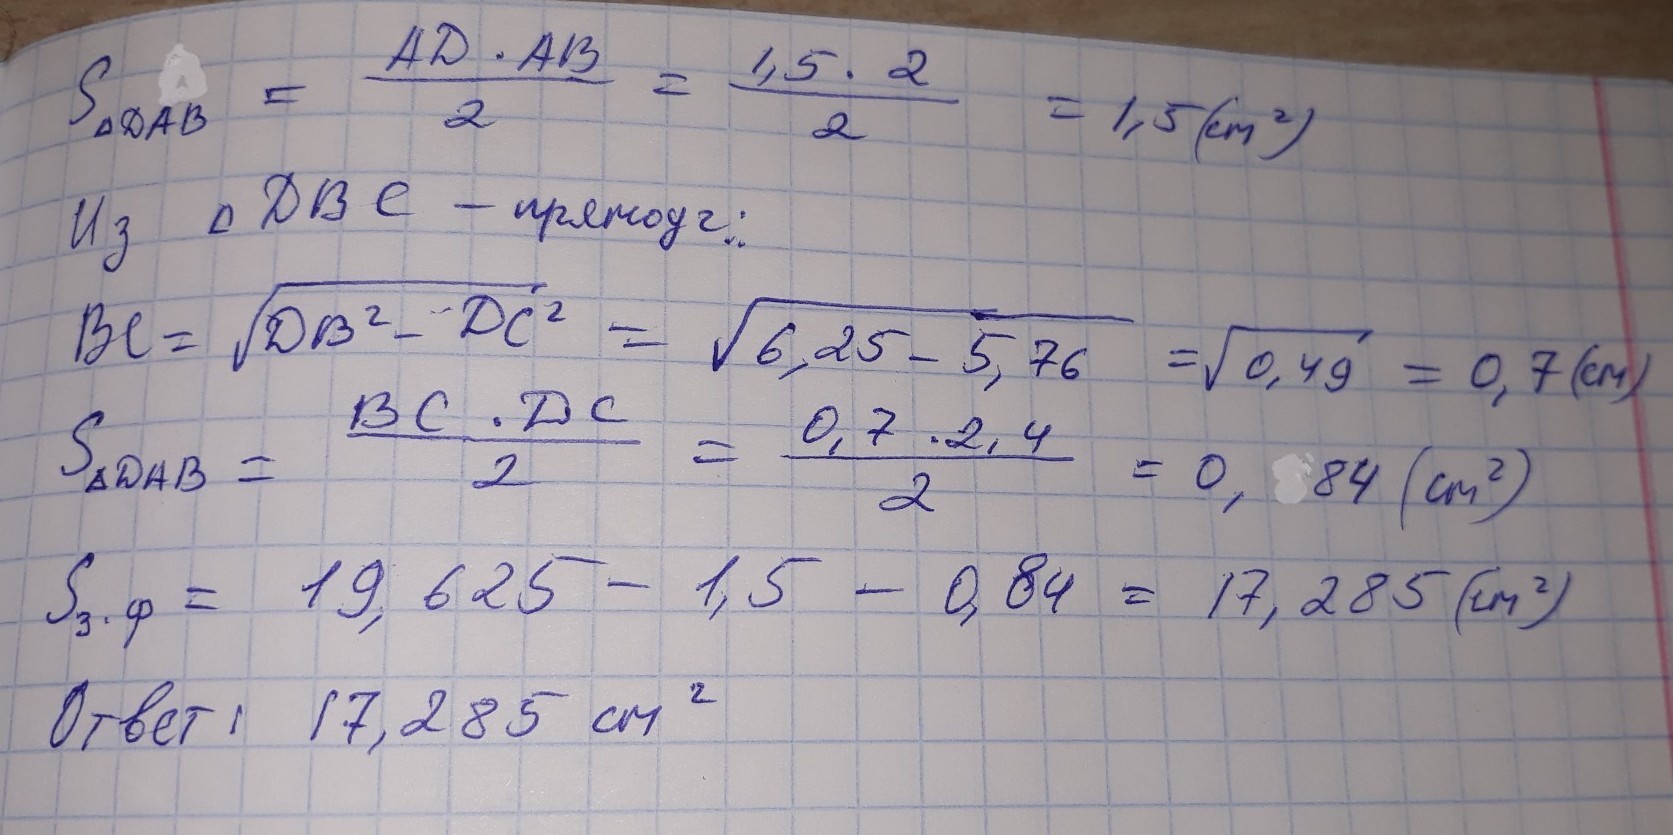 S△DAB = AD · AB / 2 = 1,5 · 2 / 2 = 1,5 (см²)
Из △DBC – прямоуг.:
BC = √(DB² – DC²) = √(6,25 – 5,76) = √0,49 = 0,7 (см)
S△DAB = BC · DC / 2 = 0,7 · 2,4 / 2 = 0,84 (см²)
Sз.ф = 19,625 – 1,5 – 0,84 = 17,285 (см²)
Ответ: 17,285 см²